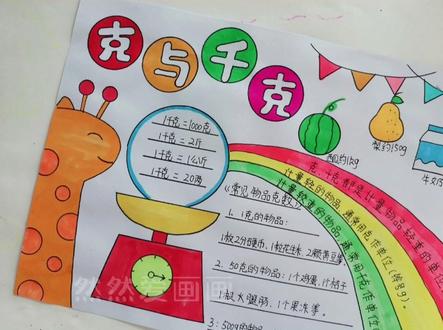 克与千克
1千克=1000克
1千克=2斤
1千克=1公斤
1千克=20两
梨约150g
克、千克都是计量物品轻重的单位
计量轻的物品,通常用克作单位
计量较重的物品,通常用千克作单位
《常见物品克数》
1、1克的物品:
1枚2分硬币、1粒花生米、2颗黄豆等
2、50克的物品:1个鸡蛋、1个桔子
1根火腿肠、1个果冻等。
3:500g的物品
然然爱画画